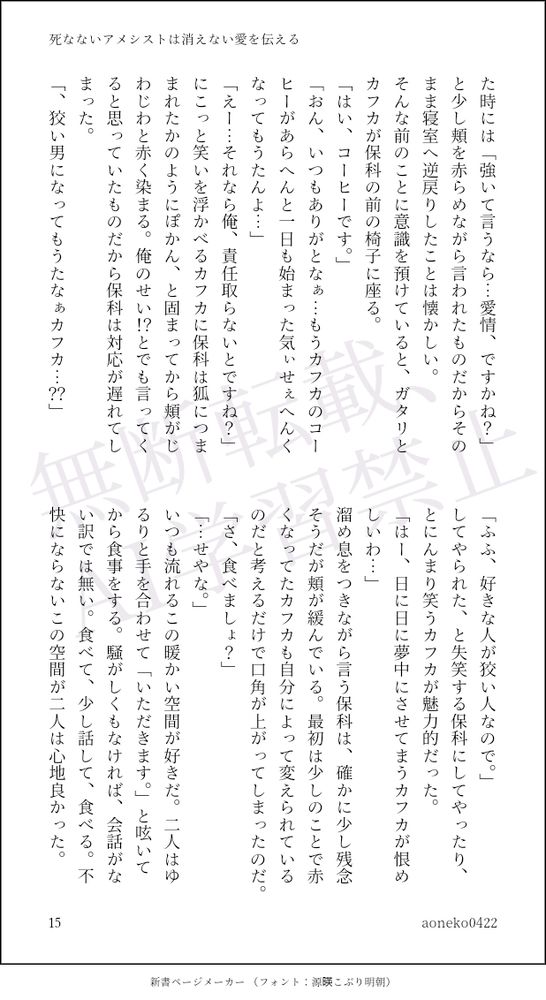 死なないアメシストは消えない愛を伝える
た時には「強いて言うなら…愛情、ですかね?」
と少し頬を赤らめながら言われたものだからその
まま寝室へ逆戻りしたことは懐かしい。
そんな前のことに意識を預けていると、ガタリと
カフカが保科の前の椅子に座る。
「はい、コーヒーです。」
「おん、いつもありがとなぁ…もうカフカのコー
ヒーがあらへんと一日も始まった気ぃせぇへんく
なってもうたんよ…」
「えー…それなら俺、責任取らないとですね?」
にこっと笑いを浮かべるカフカに保科は狐につま
まれたかのようにぽかん、と固まってから頬がじ
わじわと赤く染まる。俺のせい!?とでも言ってく
ると思っていたものだから保科は対応が遅れてし
まった。
「、狡い男になってもうたなぁカフカ…??」
「ふふ、好きな人が狡い人なので。」
してやられた、と失笑する保科にしてやったり、
とにんまり笑うカフカが魅力的だった。
「はー、日に日に夢中にさせてまうカフカが恨め
しいわ…」
溜め息をつきながら言う保科は、確かに少し残念
そうだが頬が緩んでいる。最初は少しのことで赤
くなってたカフカも自分によって変えられている
のだと考えるだけで口角が上がってしまったのだ。
「さ、食べましょ?」
「…せやな。」
いつも流れるこの暖かい空間が好きだ。二人はゆ
るりと手を合わせて「いただきます。」と呟いて
から食事をする。騒がしくもなければ、会話がな
い訳では無い。食べて、少し話して、食べる。不
快にならないこの空間が二人は心地良かった。
無断転載、
AI学習禁止
15
aoneko0422
新書ページメーカー(フォント:源暎こぶり明朝)